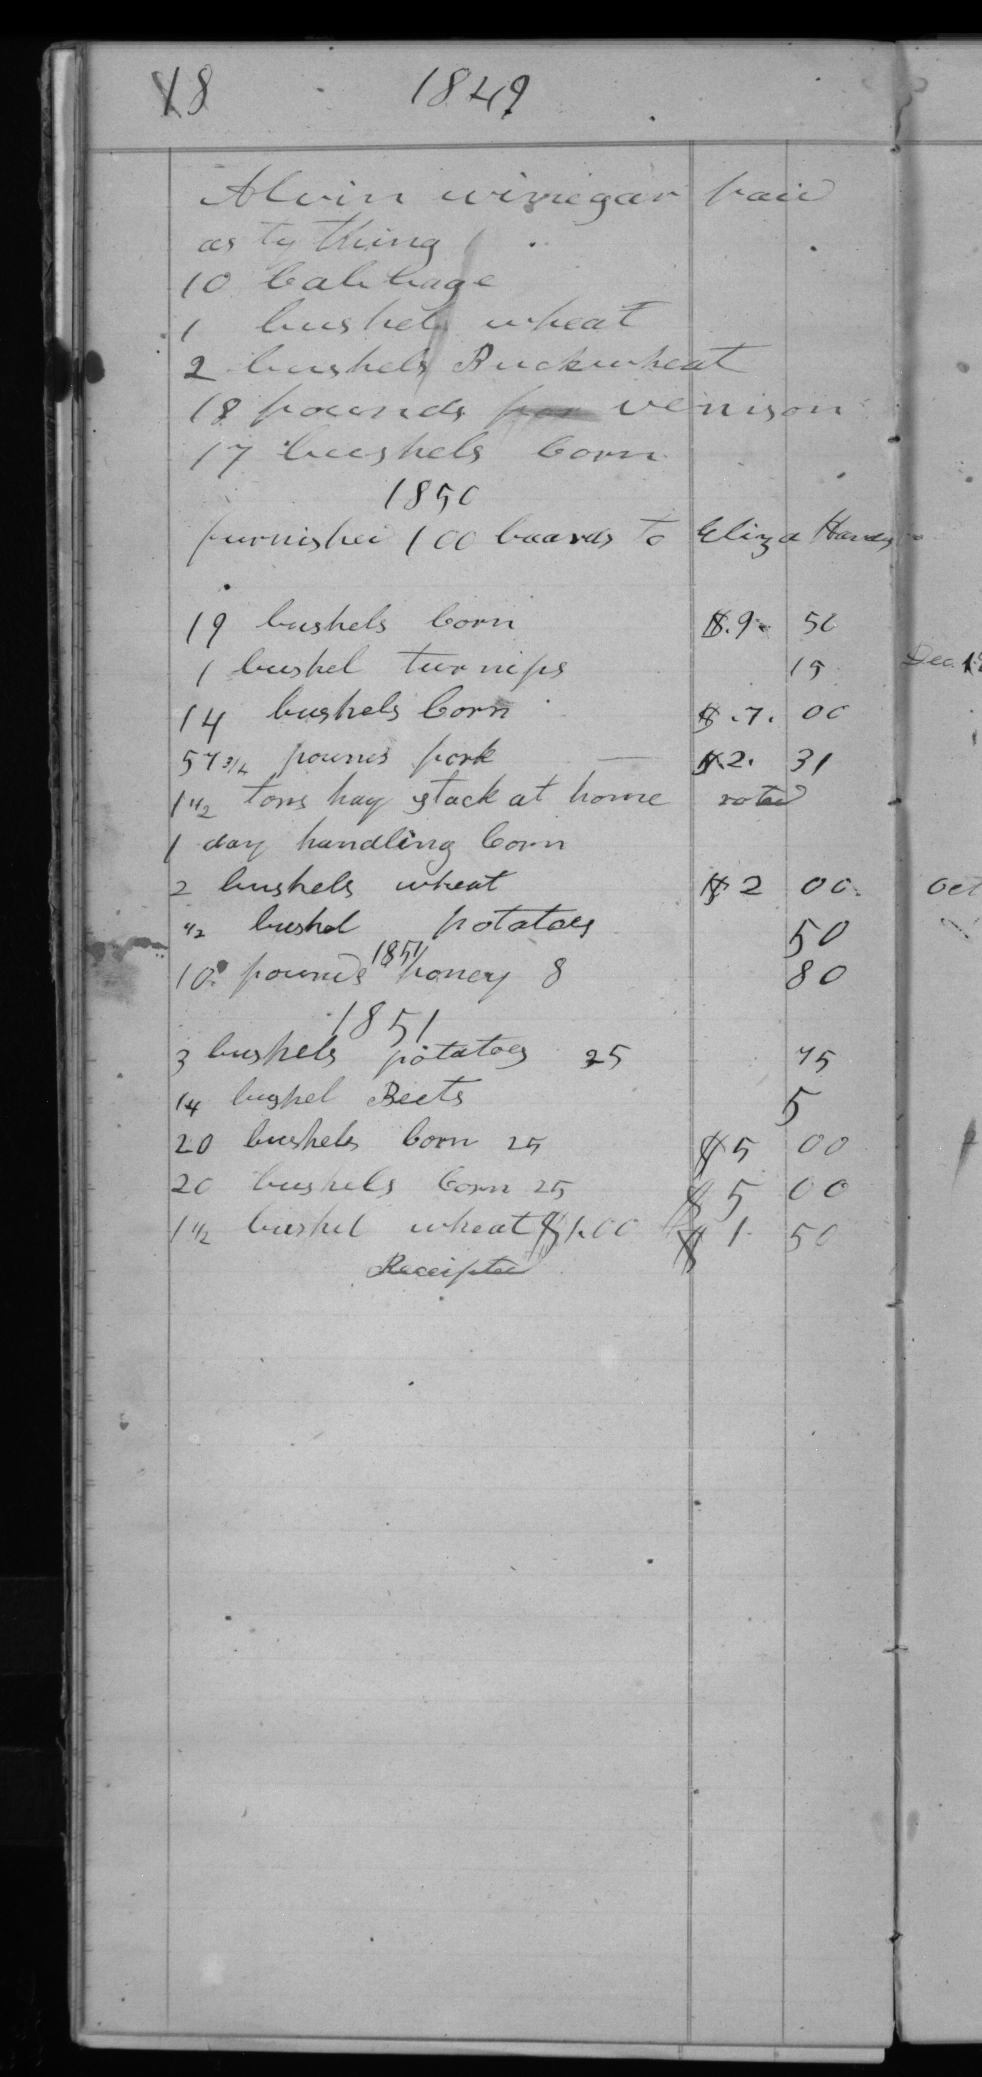 18 1849
Alvin winegar paid
as tything
10 Cabbage
1 bushels wheat
2 bushels Buckwheat
18 pounds venison
17 bushels Corn
1850
furnished 100 boards to Eliza
19 bushels Corn $.9. 50
1 bushel turnips 15
14 bushels Corn $.7. 00
57 3/4 pounds pork $.2. 31
1 1/2 tons hay stack at home
1 day handling Corn
2 bushels wheat $ 2 00
1/2 bushel potatoes 50
1851
10 pounds honey 8 80
1851
3 bushels potatoes 25 75
1/4 bushel Beets 5
20 bushels Corn 25 $ 5 00
20 bushels Corn 25 $ 5 00
1 1/2 bushel wheat $1.00 $ 1. 50
Receipted
Dec.
Oct